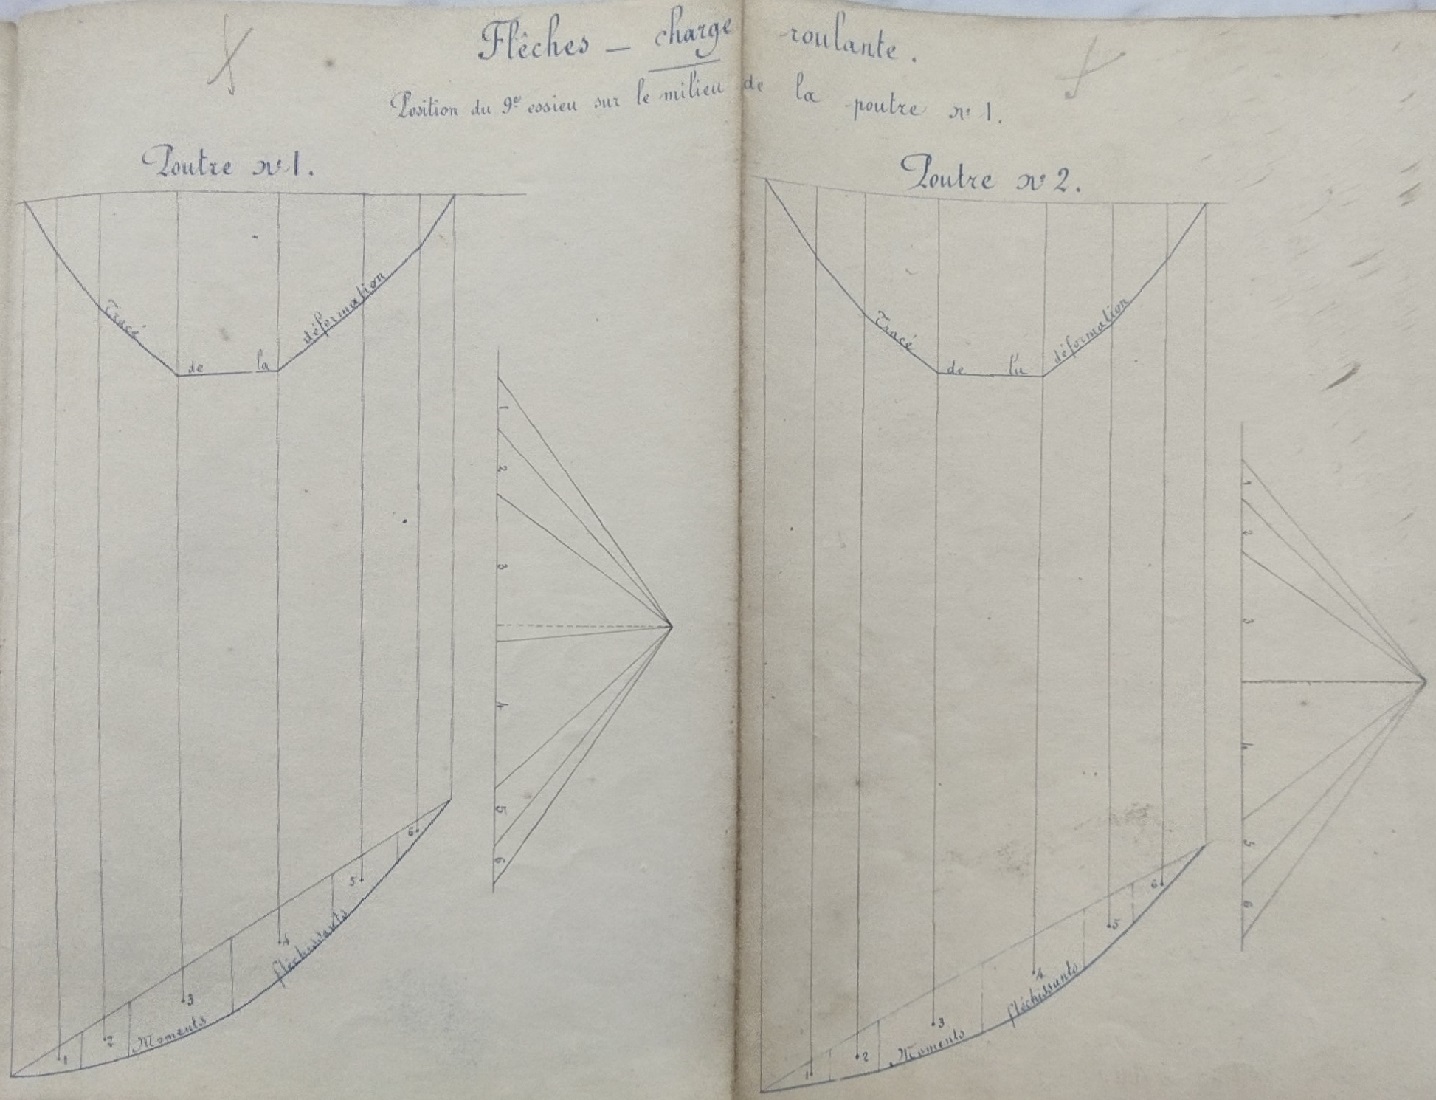 Flêches — charge roulante.
Position du 9e essieu sur le milieu de la poutre no 1.
Poutre no 1.
Tracé de la déformation
1
2
3
4
5
6
1
2
3
4
5
6
Moments fléchissants
Poutre no 2.
Tracé de la déformation
1
2
3
4
5
6
1
2
3
4
5
6
Moments fléchissants